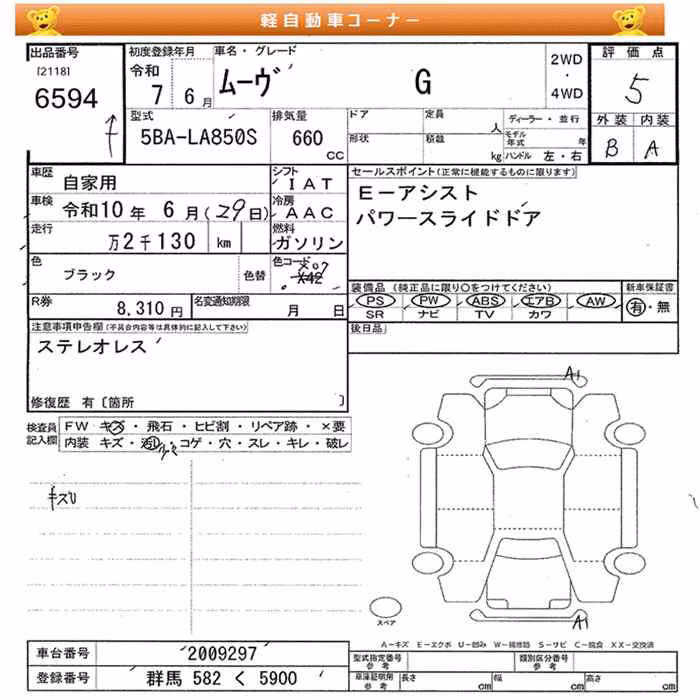 軽自動車コーナー
出品番号
[2118]
6594
初度登録年月
令和
7 6月
車名・グレード
ムーヴ G
2WD
・
4WD
評価点
5
外装 内装
B A
型式
5BA-LA850S
排気量
660
CC
ドア 定員
人
形状 積載
kg
ディーラー・並行
モデル年式 年
ハンドル 左・右
車歴 自家用
シフト IAT
車検 令和10年 6月(29日)
冷房 AAC
走行 万2千130 km
燃料 ガソリン
色 ブラック 色替
色コード X07
X42
R券 8,310円
名変通知期限 月 日
セールスポイント(正常に機能するものに限ります)
E-アシスト
パワースライドドア
装備品 (純正品に限り○をつけてください)
PS PW ABS エアB AW
SR ナビ TV カワ
新車保証書
有・無
後日品
注意事項申告欄(不具合内容等は具体的に記入して下さい)
ステレオレス
修復歴 有〔箇所 〕
検査員
記入欄
FW キズ・飛石・ヒビ割・リペア跡・×要
内装 キズ・汚・コゲ・穴・スレ・キレ・破レ
キズU
A1
A1
スペア
A-キズ E-エクボ U-凹み W-補修跡 S-サビ C-腐食 XX-交換済
車台番号 2009297
登録番号 群馬 582 く 5900
型式指定番号
参考
類別区分番号
参考
車庫証明用
参考
長さ cm 幅 cm 高さ cm